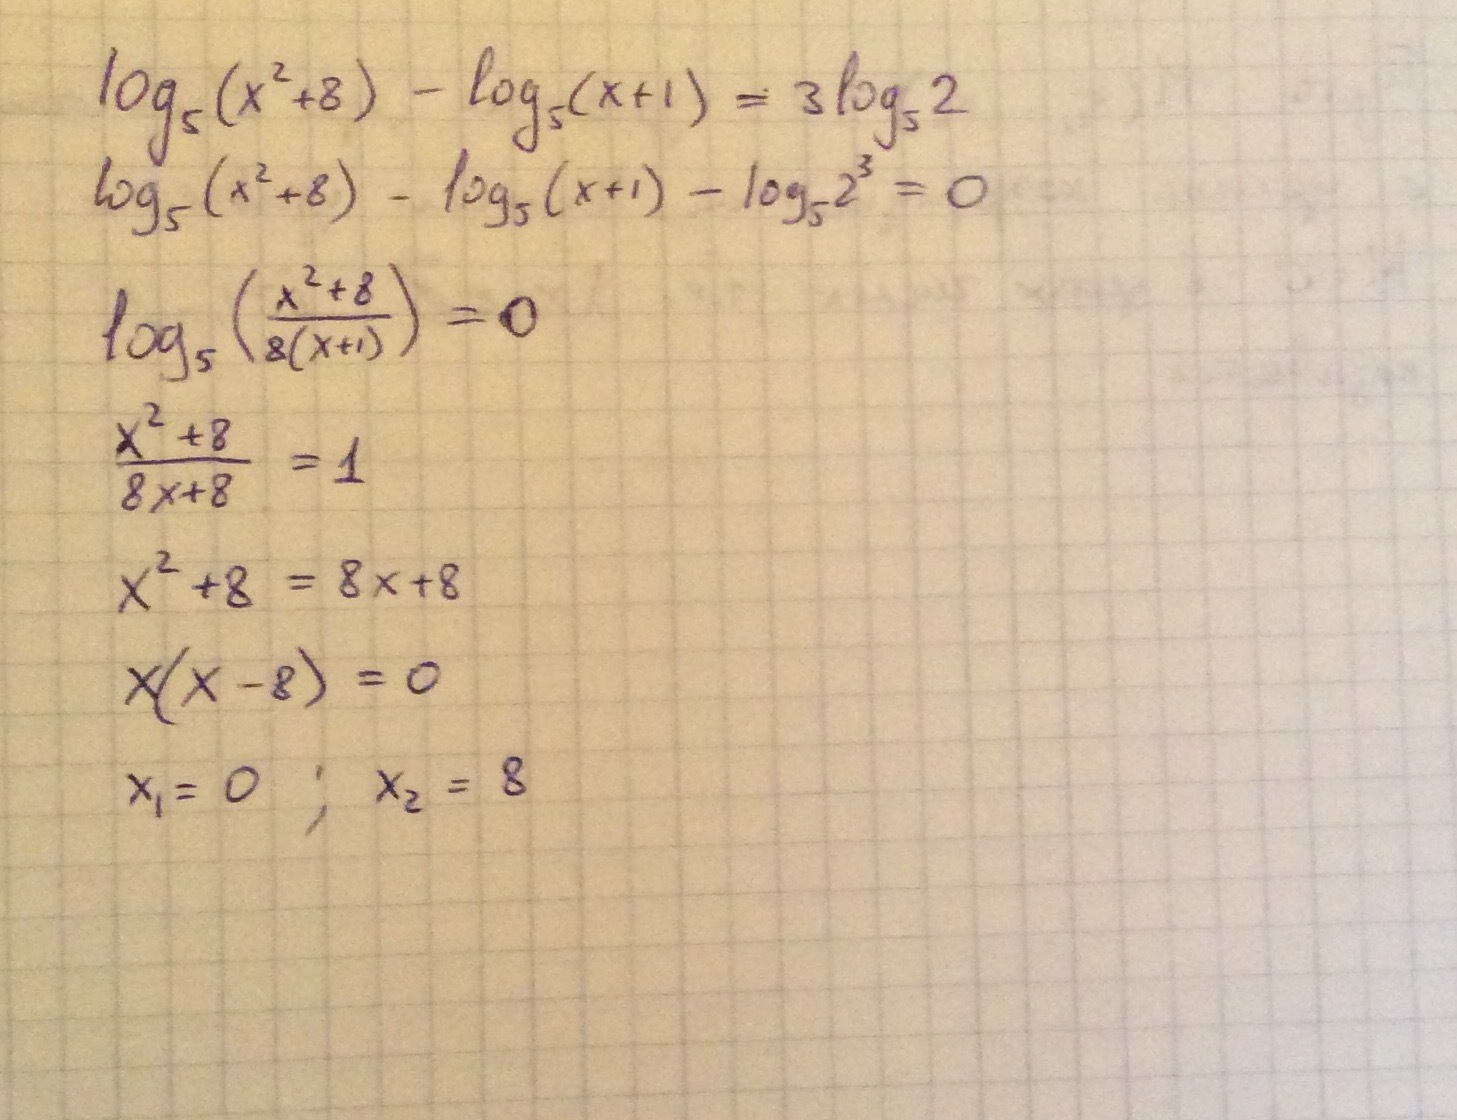 log₅(x²+8) - log₅(x+1) = 3log₅2
log₅(x²+8) - log₅(x+1) - log₅2³ = 0
log₅((x²+8)/(8(x+1))) = 0
(x²+8)/(8x+8) = 1
x²+8 = 8x+8
x(x-8) = 0
x₁ = 0 ; x₂ = 8